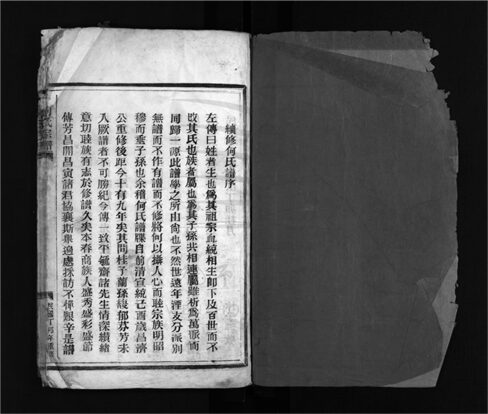 續修何氏譜序
左傳曰姓者生也為其祖宗血統相生即下及百世而不
改其氏也族者屬也為其子孫共相連屬雖析為萬派而
同歸一源此譜學之所由尚也不然世遠年湮支分派別
無譜而不作有譜而不修將何以攝人心而聯宗族明昭
穆而垂子孫也余稽何氏譜牒自前清宣統己酉歲昌濟
公重修後距今十有九年矣其間桂子蘭孫馥郁芬芳未
入厥譜者不可勝紀今傳一致平毓齋諸先生情深纘緒
意切睦族有志於修譜久矣本春商族人盛秀盛彩盛節
傳芳昌開昌寅諸君協襄斯舉遍處採訪不憚艱辛是譜